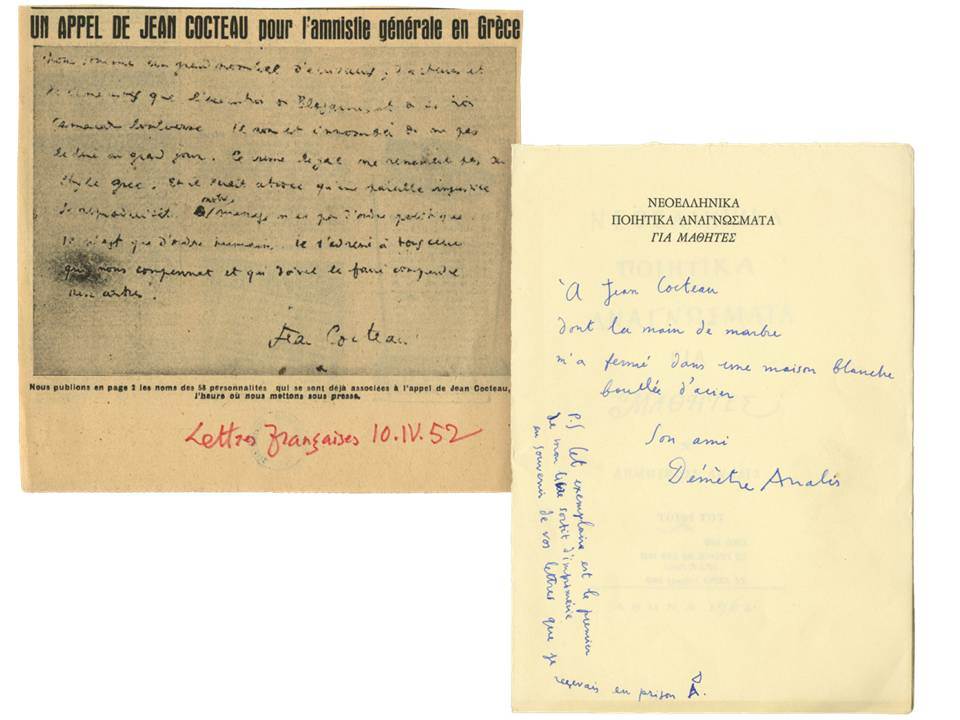 UN APPEL DE JEAN COCTEAU pour l'amnistie générale en Grèce
Nous sommes un grand nombre d'écrivains, d'acteurs et
que l'exécution de et de ses trois
camarades Le nom est de ne pas
le dire au grand jour. Ce crime légal ne ressemble pas au
style grec. Et il serait atroce qu'une pareille injustice
se reproduisît. message n'est pas d'ordre politique
Il n'est que d'ordre humain. Je l'adresse à tous ceux
qui nous comprennent et qui doivent le faire comprendre
aux autres.
Jean Cocteau
Nous publions en page 2 les noms des 58 personnalités qui se sont déjà associées à l'appel de Jean Cocteau,
l'heure où nous mettons sous presse.
Lettres françaises 10.IV.52
ΝΕΟΕΛΛΗΝΙΚΑ
ΠΟΙΗΤΙΚΑ ΑΝΑΓΝΩΣΜΑΤΑ
ΓΙΑ ΜΑΘΗΤΕΣ
À Jean Cocteau
dont la main de marbre
m'a fermé dans une maison blanche
d'acier
Son ami
Démètre Analis
P.S Cet exemplaire est le premier
de mon livre sortit d'imprimérie
en souvenir de vos lettres que je
recevais en prison D.A.